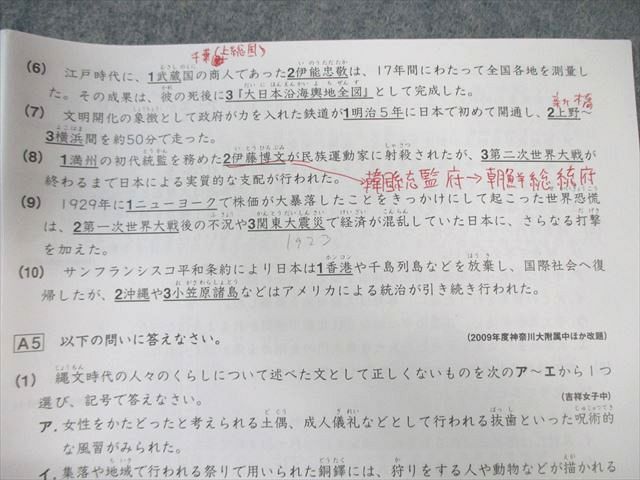 千葉(上総国)
(6) 江戸時代に、1武蔵国の商人であった2伊能忠敬は、17年間にわたって全国各地を測量し
た。その成果は、彼の死後に3『大日本沿海輿地全図』として完成した。
(7) 文明開化の象徴として政府が力を入れた鉄道が1明治5年に日本で初めて開通し、2上野〜
新橋
3横浜間を約50分で走った。
(8) 1満州の初代統監を務めた2伊藤博文が民族運動家に射殺されたが、3第二次世界大戦が
終わるまで日本による実質的な支配が行われた。
韓国統監府→朝鮮総統府
(9) 1929年に1ニューヨークで株価が大暴落したことをきっかけにして起こった世界恐慌
は、2第一次世界大戦後の不況や3関東大震災で経済が混乱していた日本に、さらなる打撃
を加えた。
1923
(10) サンフランシスコ平和条約により日本は1香港や千島列島などを放棄し、国際社会へ復
帰したが、2沖縄や3小笠原諸島などはアメリカによる統治が引き続き行われた。
A5 以下の問いに答えなさい。
(2009年度神奈川大附属中ほか改題)
(1) 縄文時代の人々のくらしについて述べた文として正しくないものを次のア〜エから1つ
選び、記号で答えなさい。
(吉祥女子中)
ア. 女性をかたどったと考えられる土偶、成人儀礼などとして行われる抜歯といった呪術的
な風習がみられた。
イ. 集落や地域で行われる祭りで用いられた銅鐸には、狩りをする人や動物などが描かれる